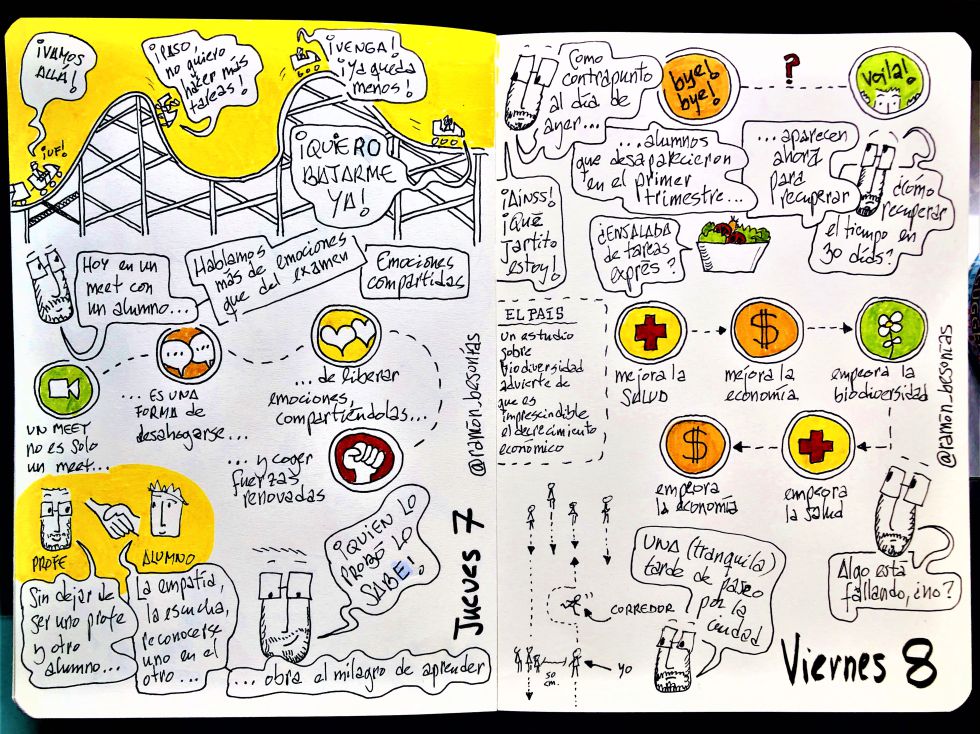 ¡VAMOS
ALLÁ!
¡UF!
¡PASO,
no quiero
hazer más
tareas!
¡VENGA!
¡Ya queda
menos!
¡QUIERO
BAJARME
YA!
Hoy en un
meet con
un alumno...
Hablamos
más de emociones
que del examen
Emociones
compartidas
UN MEET
no es solo
un meet...
... ES UNA
FORMA de
desahogarse...
... de liberar
emociones,
compartiéndolas...
... y coger
fuerzas
renovadas
@ramón_besonías
PROFE
ALUMNO
Sin dejar de
ser uno profe
y otro
alumno...
La empatía,
la escucha,
reconocerse
uno en el
otro...
¡QUIEN LO
PROBÓ LO
SABE!
... obra el milagro de aprender
Jueves 7
Como
contrapunto
al día de
ayer...
bye!
bye!
?
voilà!
...alumnos
que desaparecieron
en el primer
trimestre...
...aparecen
ahora
para
recuperar
¿Cómo
recuperar
el tiempo en
30 días?
¡Ainss!
¡Qué
jartito
estoy!
¿ENSALADA
de tareas
exprés?
EL PAÍS
Un estudio
sobre
biodiversidad
advierte de
que es
imprescindible
el decrecimiento
económico
mejora la
SALUD
$
mejora la
economía
empeora la
biodiversidad
$
empeora
la economía
empeora
la salud
@ramón_besonías
Algo está
fallando, ¿no?
CORREDOR
50
cm.
YO
UNA (tranquila)
tarde de
paseo
por la
ciudad
Viernes 8